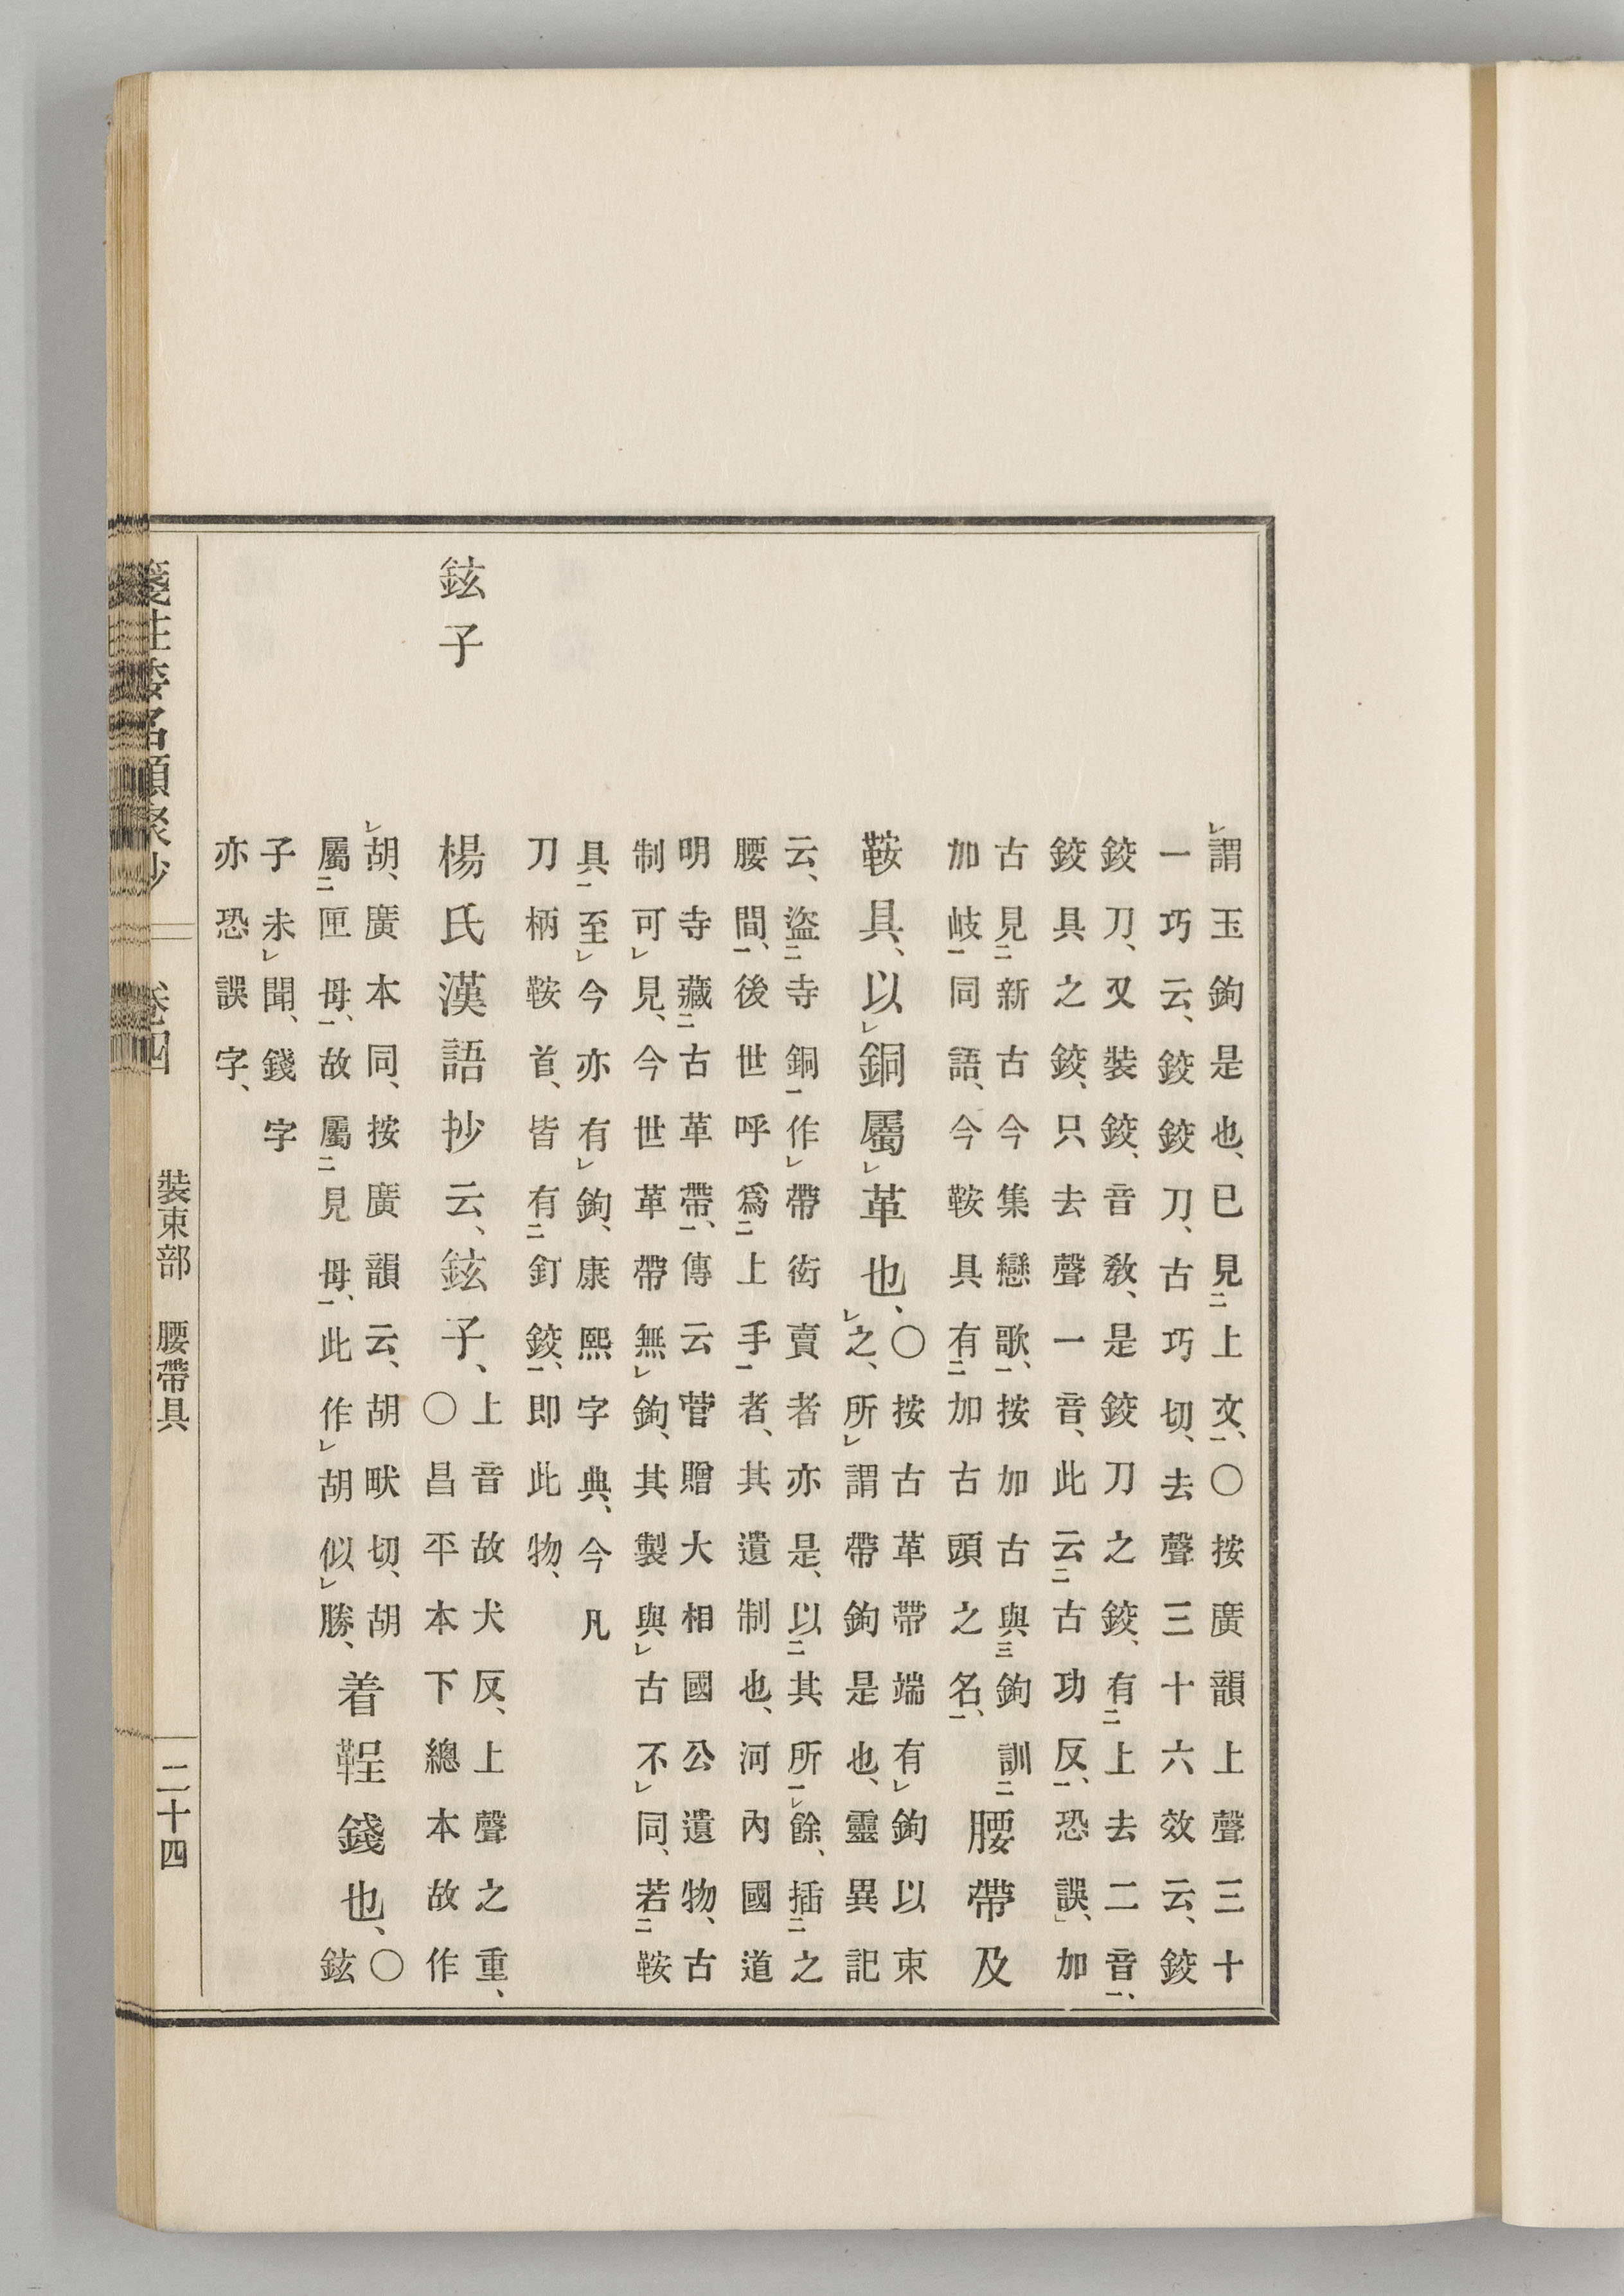 謂玉鉤是也、已見㆓上文㆒、〇按廣韻上聲三十
一巧云、鉸鉸刀、古巧切、去聲三十六效云、鉸
鉸刀、又裝鉸、音敎、是鉸刀之鉸、有㆓上去二音㆒、
鉸具之鉸、只去聲一音、此云㆓古功反㆒、恐誤、」加
古見㆓新古今集戀歌㆒、按加古與㆔鉤訓㆓
加岐㆒同語、今鞍具有㆓加古頭之名㆒、
腰帶及
鞍具、以㆑銅屬㆑革也、
〇按古革帶端有㆑鉤以束
㆑之、所㆑謂帶鉤是也、靈異記
云、盜㆓寺銅㆒作㆑帶衒賣者亦是、以㆓其所㆒㆑餘、插㆓之
腰間㆒、後世呼爲㆓上手㆒者、其遺制也、河內國道
明寺藏㆓古革帶㆒、傳云菅贈大相國公遺物、古
制可㆑見、今世革帶無㆑鉤、其製與㆑古不㆑同、若㆓鞍
具㆒至㆑今亦有㆑鉤、康熙字典、今凡
刀柄鞍首、皆有㆓釘鉸㆒、即此物、
鉉子 楊氏漢語抄云、鉉子、
上音故犬反、上聲之重、
〇昌平本下總本故作
㆑胡、廣本同、按廣韻云、胡畎切、胡
屬㆓匣母㆒、故屬㆓見母㆒、此作㆑胡似㆑勝、
着鞓錢也、
〇
鉉
子未㆑聞、錢字
亦恐誤字、
箋注倭名類聚抄 卷四 裝束部 腰帶具 二十四